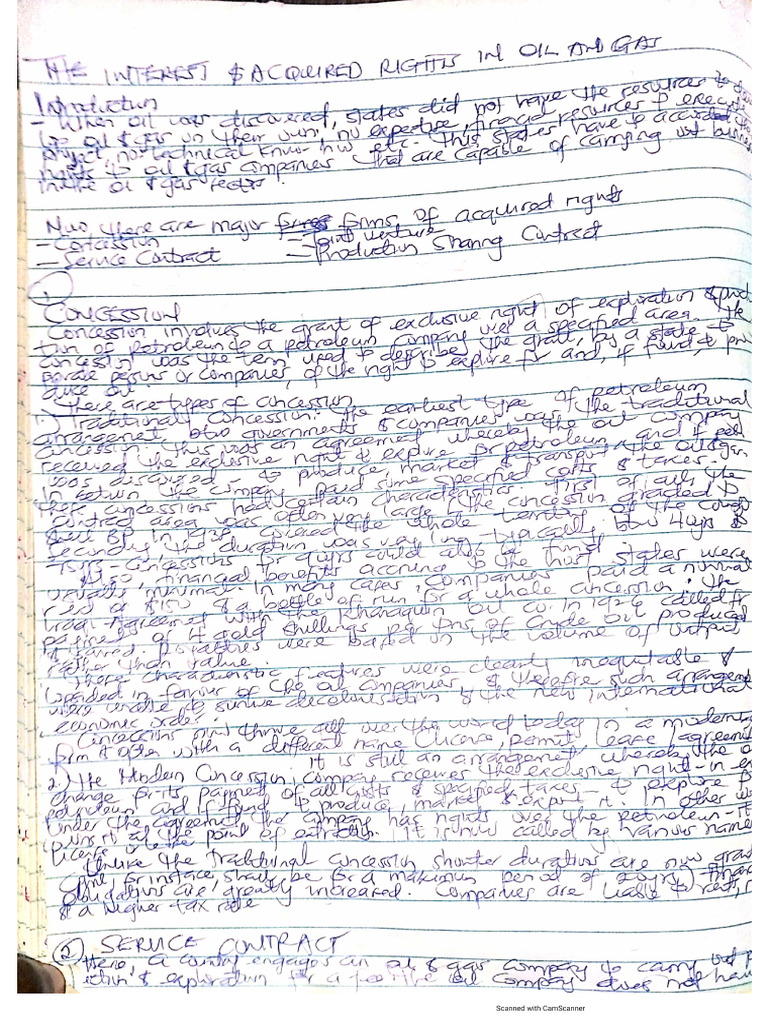 THE INTEREST & ACQUIRED RIGHTS IN OIL AND GAS
Introduction
- When oil was discovered, states did not have the resources to
oil & gas on their own, no expertise, financial resources to execute
project, no technical know how etc. Thus states have to accorded
rights to oil & gas companies that are capable of carrying out business
in the oil & gas sector.
Now, there are major forms of acquired rights
- Concession - Joint Venture
- Service Contract - Production Sharing Contract
1
CONCESSION
Concession involves the grant of exclusive right of exploration & produc
tion of petroleum to a petroleum company over a specified area. The
concession was the term used to describe the grant, by a state to
private persons or companies, of the right to explore for and, if found, to pro
duce oil.
There are types of concession
1.) Traditional Concession: The earliest type of petroleum
arrangement btw governments & companies was the traditional
concession. This was an agreement whereby the oil company
received the exclusive right to explore for petroleum and if petr
was discovered to produce, market & transport the oil & gas
In return the company paid some specified costs & taxes.
These concessions had certain characteristics. First of all, the
contract area was often very large e.g. the concession granted to
Shell BP in 1938 covered the whole territory of the
Secondly, the duration was very long - typically btw 40yrs &
75yrs - concessions for 99yrs could also be found.
Also, financial benefits accruing to the host states were
usually minimal. In many cases, companies paid a nominal
of £150 & a bottle of rum for a whole concession. The
Iraqi Agreement with the oil co. in 1926 called for
payment of 4 gold shillings per tons of crude oil produced
& saved. Royalties were based on the volume of output
rather than value.
These characteristic features were clearly inequitable &
loaded in favour of the oil companies, & therefore such arrangeme
were unable to survive decolonisation & the new international
economic order.
Concessions now thrive all over the world today in a modern
form & often with a different name licence, permit, lease agreement
it is still an arrangement whereby the
2.) The Modern Concession, company receives the exclusive right - in ex
change for its payment of all costs & specified taxes - to explore
petroleum and if found to produce, market & export it. In other
Under the agreement the company has rights over the petroleum - it
owns it at the point of extraction. It is now called by various name
licence
Unlike the Traditional concession shorter durations are now grant
OML for instance, shall be for a maximum period of 20yrs) Financ
obligations are greatly increased. Companies are liable to rents,
& a higher tax rate
2 SERVICE CONTRACT
Here, a country engages an oil & gas company to carry out
& exploration for a fee. The oil company does not hav
Scanned with CamScanner